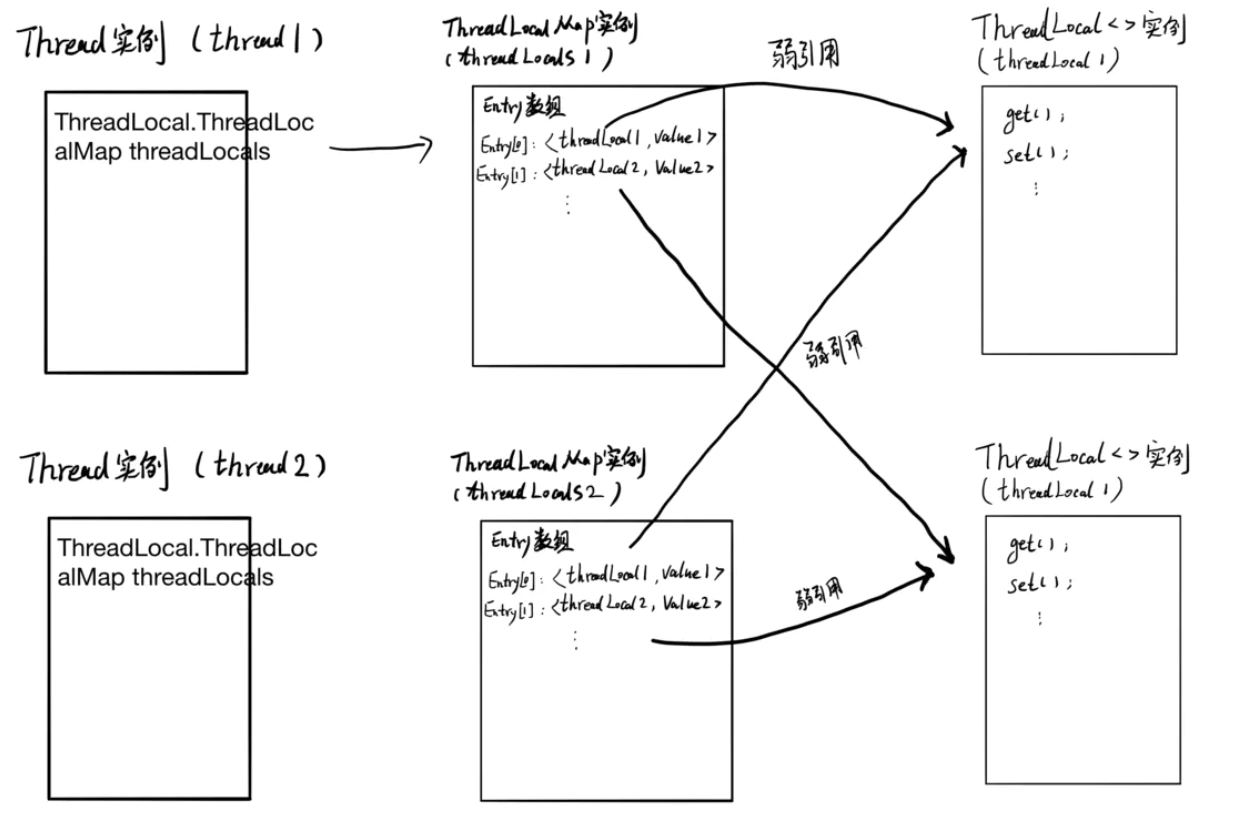 Thread实例 (thread1)
ThreadLocal.ThreadLoc
alMap threadLocals
ThreadLocalMap实例
(threadLocals1)
Entry数组
Entry[0]: <threadLocal1, value1>
Entry[1]: <threadLocal2, Value2>
⋮
弱引用
ThreadLocal<>实例
(threadLocal1)
get();
set();
⋮
弱引用
Thread实例 (thread2)
ThreadLocal.ThreadLoc
alMap threadLocals
ThreadLocalMap实例
(threadLocals2)
Entry数组
Entry[0]: <threadLocal1, value1>
Entry[1]: <threadLocal2, Value2>
⋮
弱引用
ThreadLocal<>实例
(threadLocal1)
get();
set();
⋮